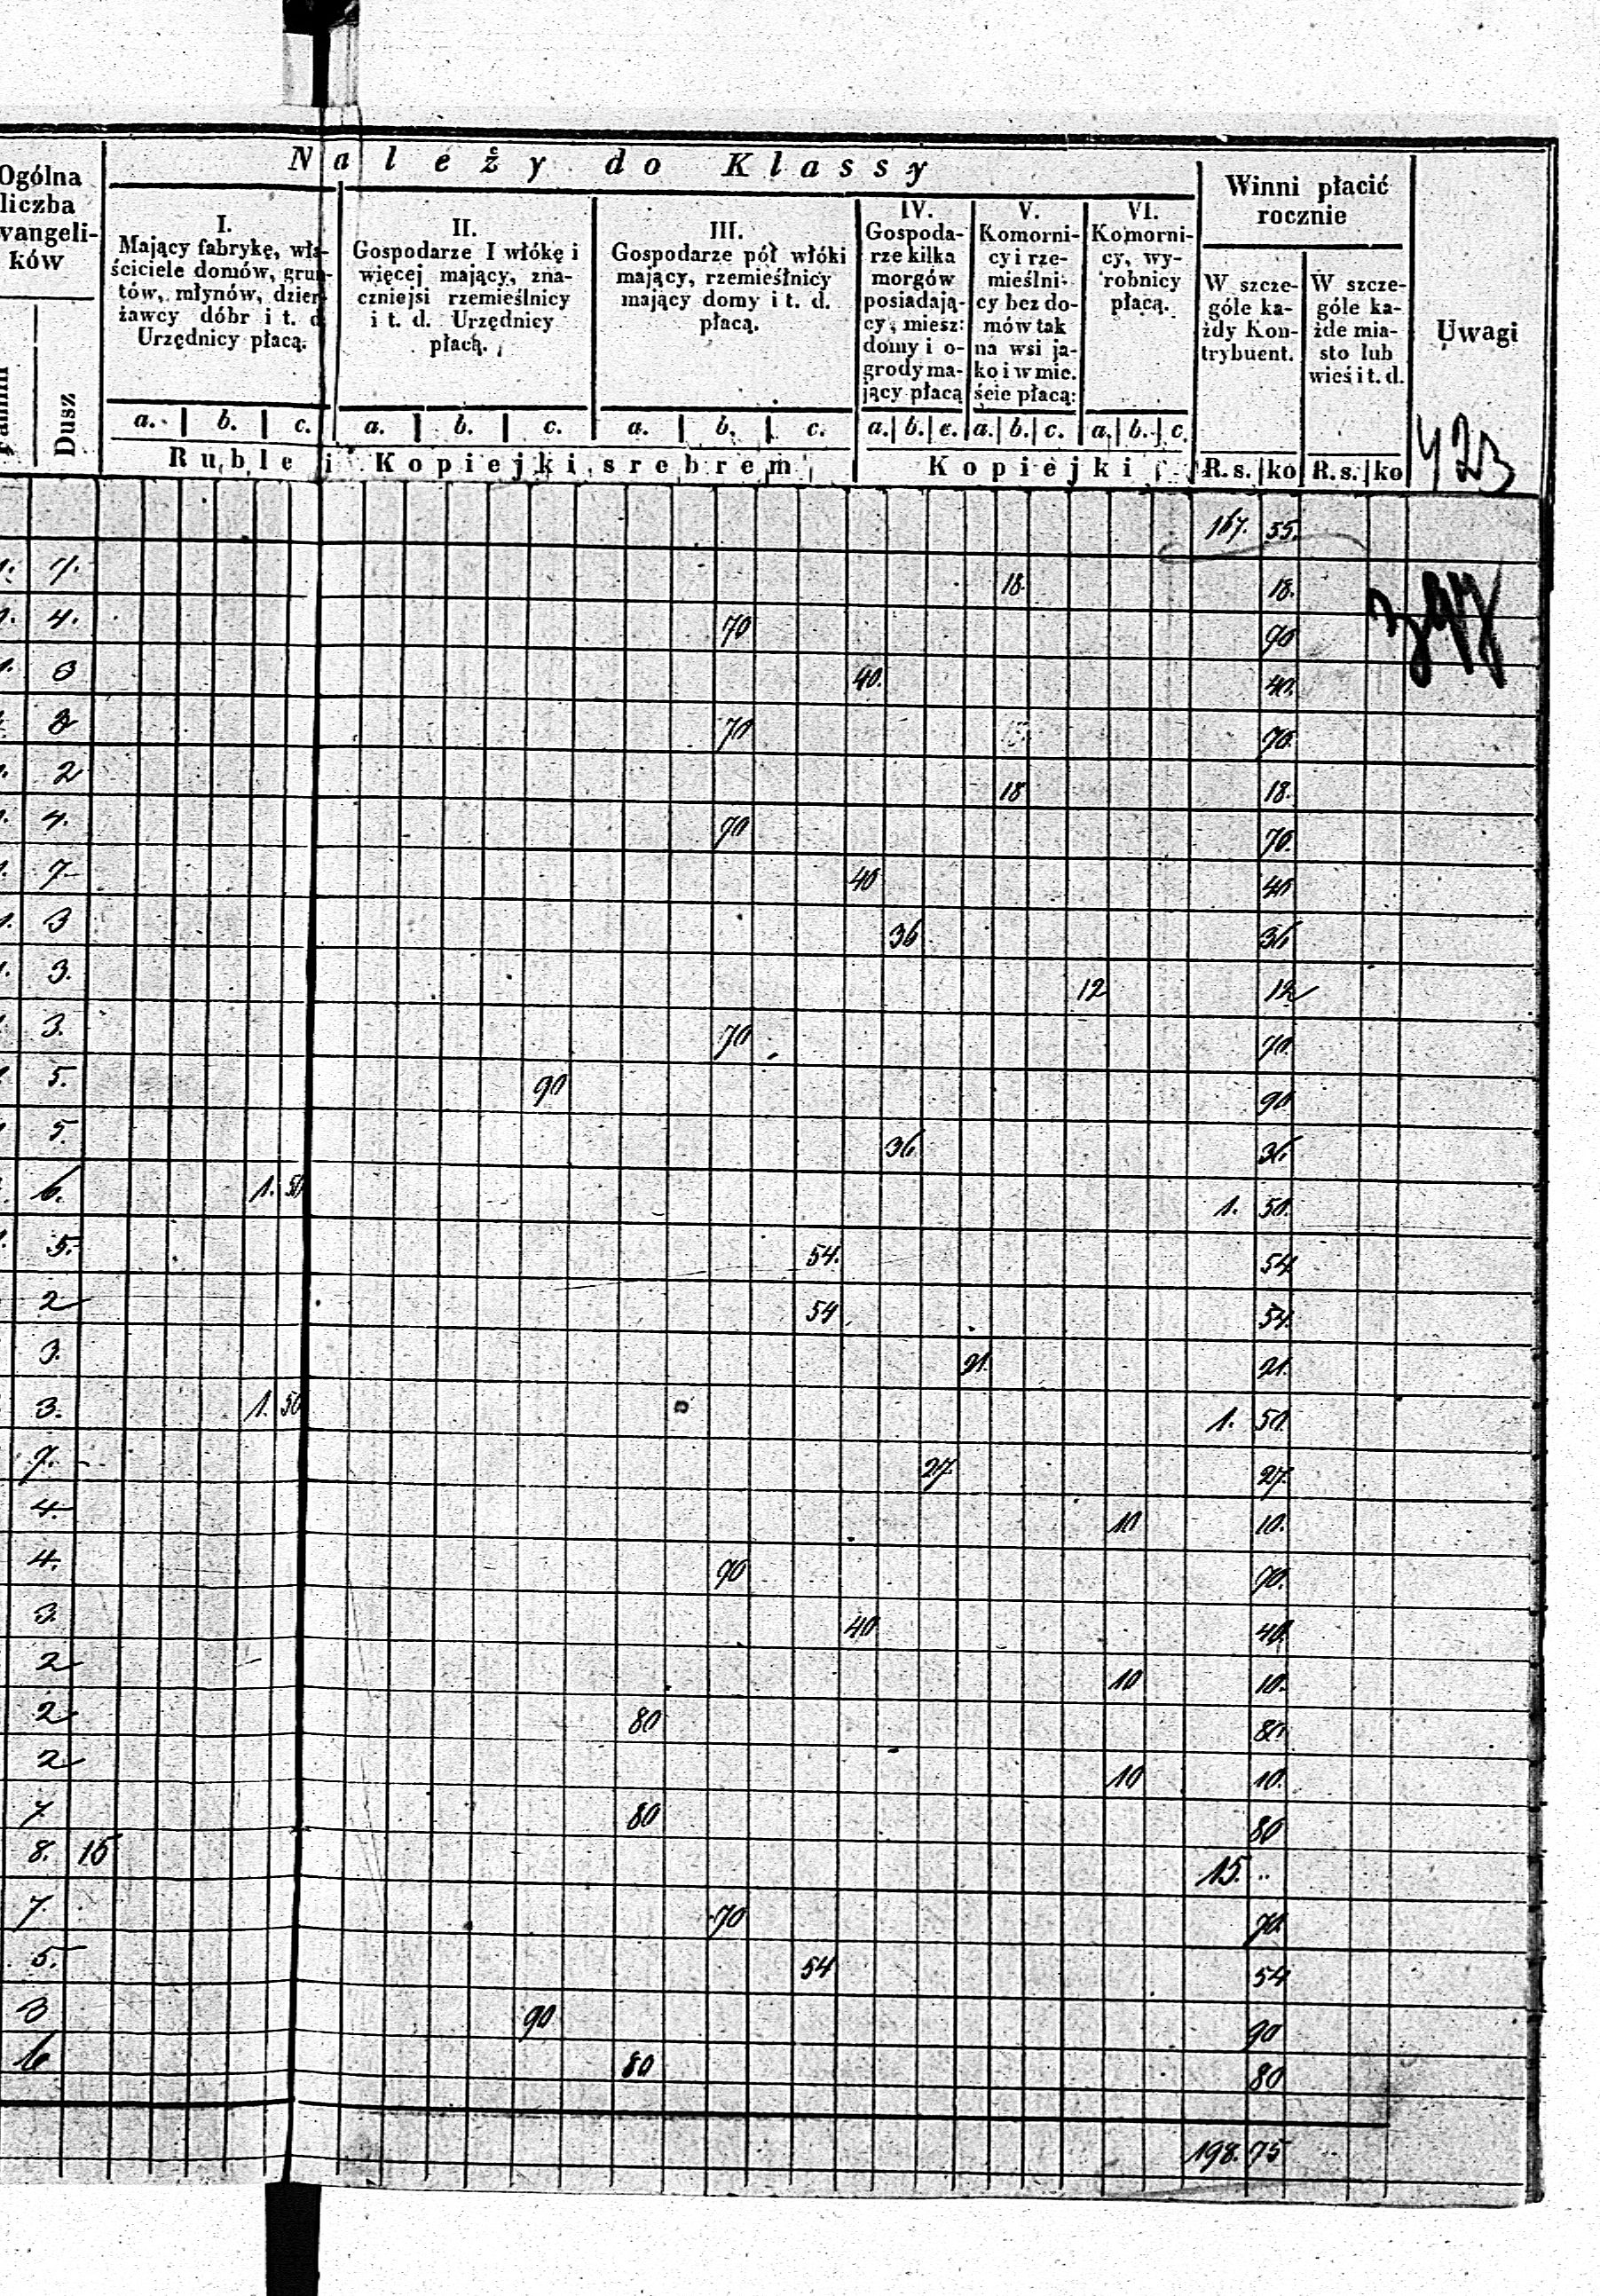 Należy do Klassy
Ogólna liczba wangeli-ków
Dusz
I. Mający fabrykę, wła-ściciele domów, grun-tów, młynów, dzier-żawcy dóbr i t. d. Urzędnicy płacą.
II. Gospodarze I włókę i więcej mający, zna-czniejsi rzemieślnicy i t. d. Urzędnicy płacą.
III. Gospodarze pół włóki mający, rzemieślnicy mający domy i t. d. płacą.
IV. Gospoda-rze kilka morgów posiadają-cy, miesz: domy i o-grody ma-jący płacą
V. Komorni-cy i rze-mieślni-cy bez do-mów tak na wsi ja-ko i w mie. ście płacą:
VI. Komorni-cy, wy-robnicy płacą.
Winni płacić rocznie
W szcze-góle ka-żdy Kon-trybuent.
W szcze-góle ka-żde mia-sto lub wieś i t. d.
Uwagi
a. b. c. a. b. c. a. b. c. a. b. c. a. b. c. a. b. c.
Ruble i Kopiejki srebrem Kopiejki R. s. ko R. s. ko
423
167. 55.
7. 18. 18.
4. 70 70
3 40. 40.
3 70 70.
2 18 18.
4. 70 70.
7. 40 40
3 36 36
3. 12 12
3. 70 70.
5. 90 90
5. 36 36
6. 1. 50 1. 50.
5. 54. 54
2 54 54.
3. 21. 21.
3. 1. 50 1. 50.
7. 27. 27.
4. 10 10.
4. 70 70.
3. 40 40.
2 10 10.
2 80 80.
2 10 10.
7 80 80
8. 15 15. ..
7. 70 70
5. 54 54
3 90 90
6 80 80
198. 75